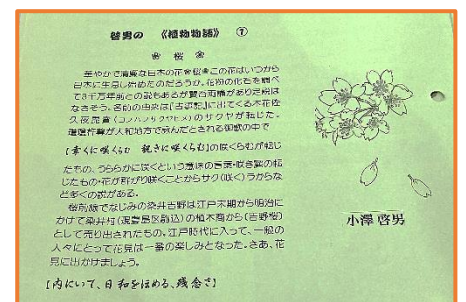 啓男の 《植物物語》 ①
❀ 桜 ❀
華やかで清廉な日本の花❀桜❀この花はいつから
日本に生息し始めたのだろうか。花粉の化石を調べ
て3千万年前との説もあるが賛否両論があり定説は
なさそう。名前の由来は『古事記』に出てくる木花佐
久夜毘賣(コノハナサクヤヒメ)のサクヤが転じた。
が大和地方で詠んだとされる御歌の中で
咲くらむ 咲くらむ]の咲くらむが転じ
たもの、うららかに咲くという意味の言葉・咲き麗の転
じたもの・花が群がり咲くことからサク(咲く)うがらな
ど多くの説がある。
桜前線でなじみの染井吉野は江戸末期から明治に
かけて染井村(現豊島区駒込)の植木商から(吉野桜)
として売り出されたもの。江戸時代に入って、一般の
人々にとって花見は一番の楽しみとなった。さあ、花
見に出かけましょう。
[内にいて、日和をほめる、残念さ]
小澤 啓男